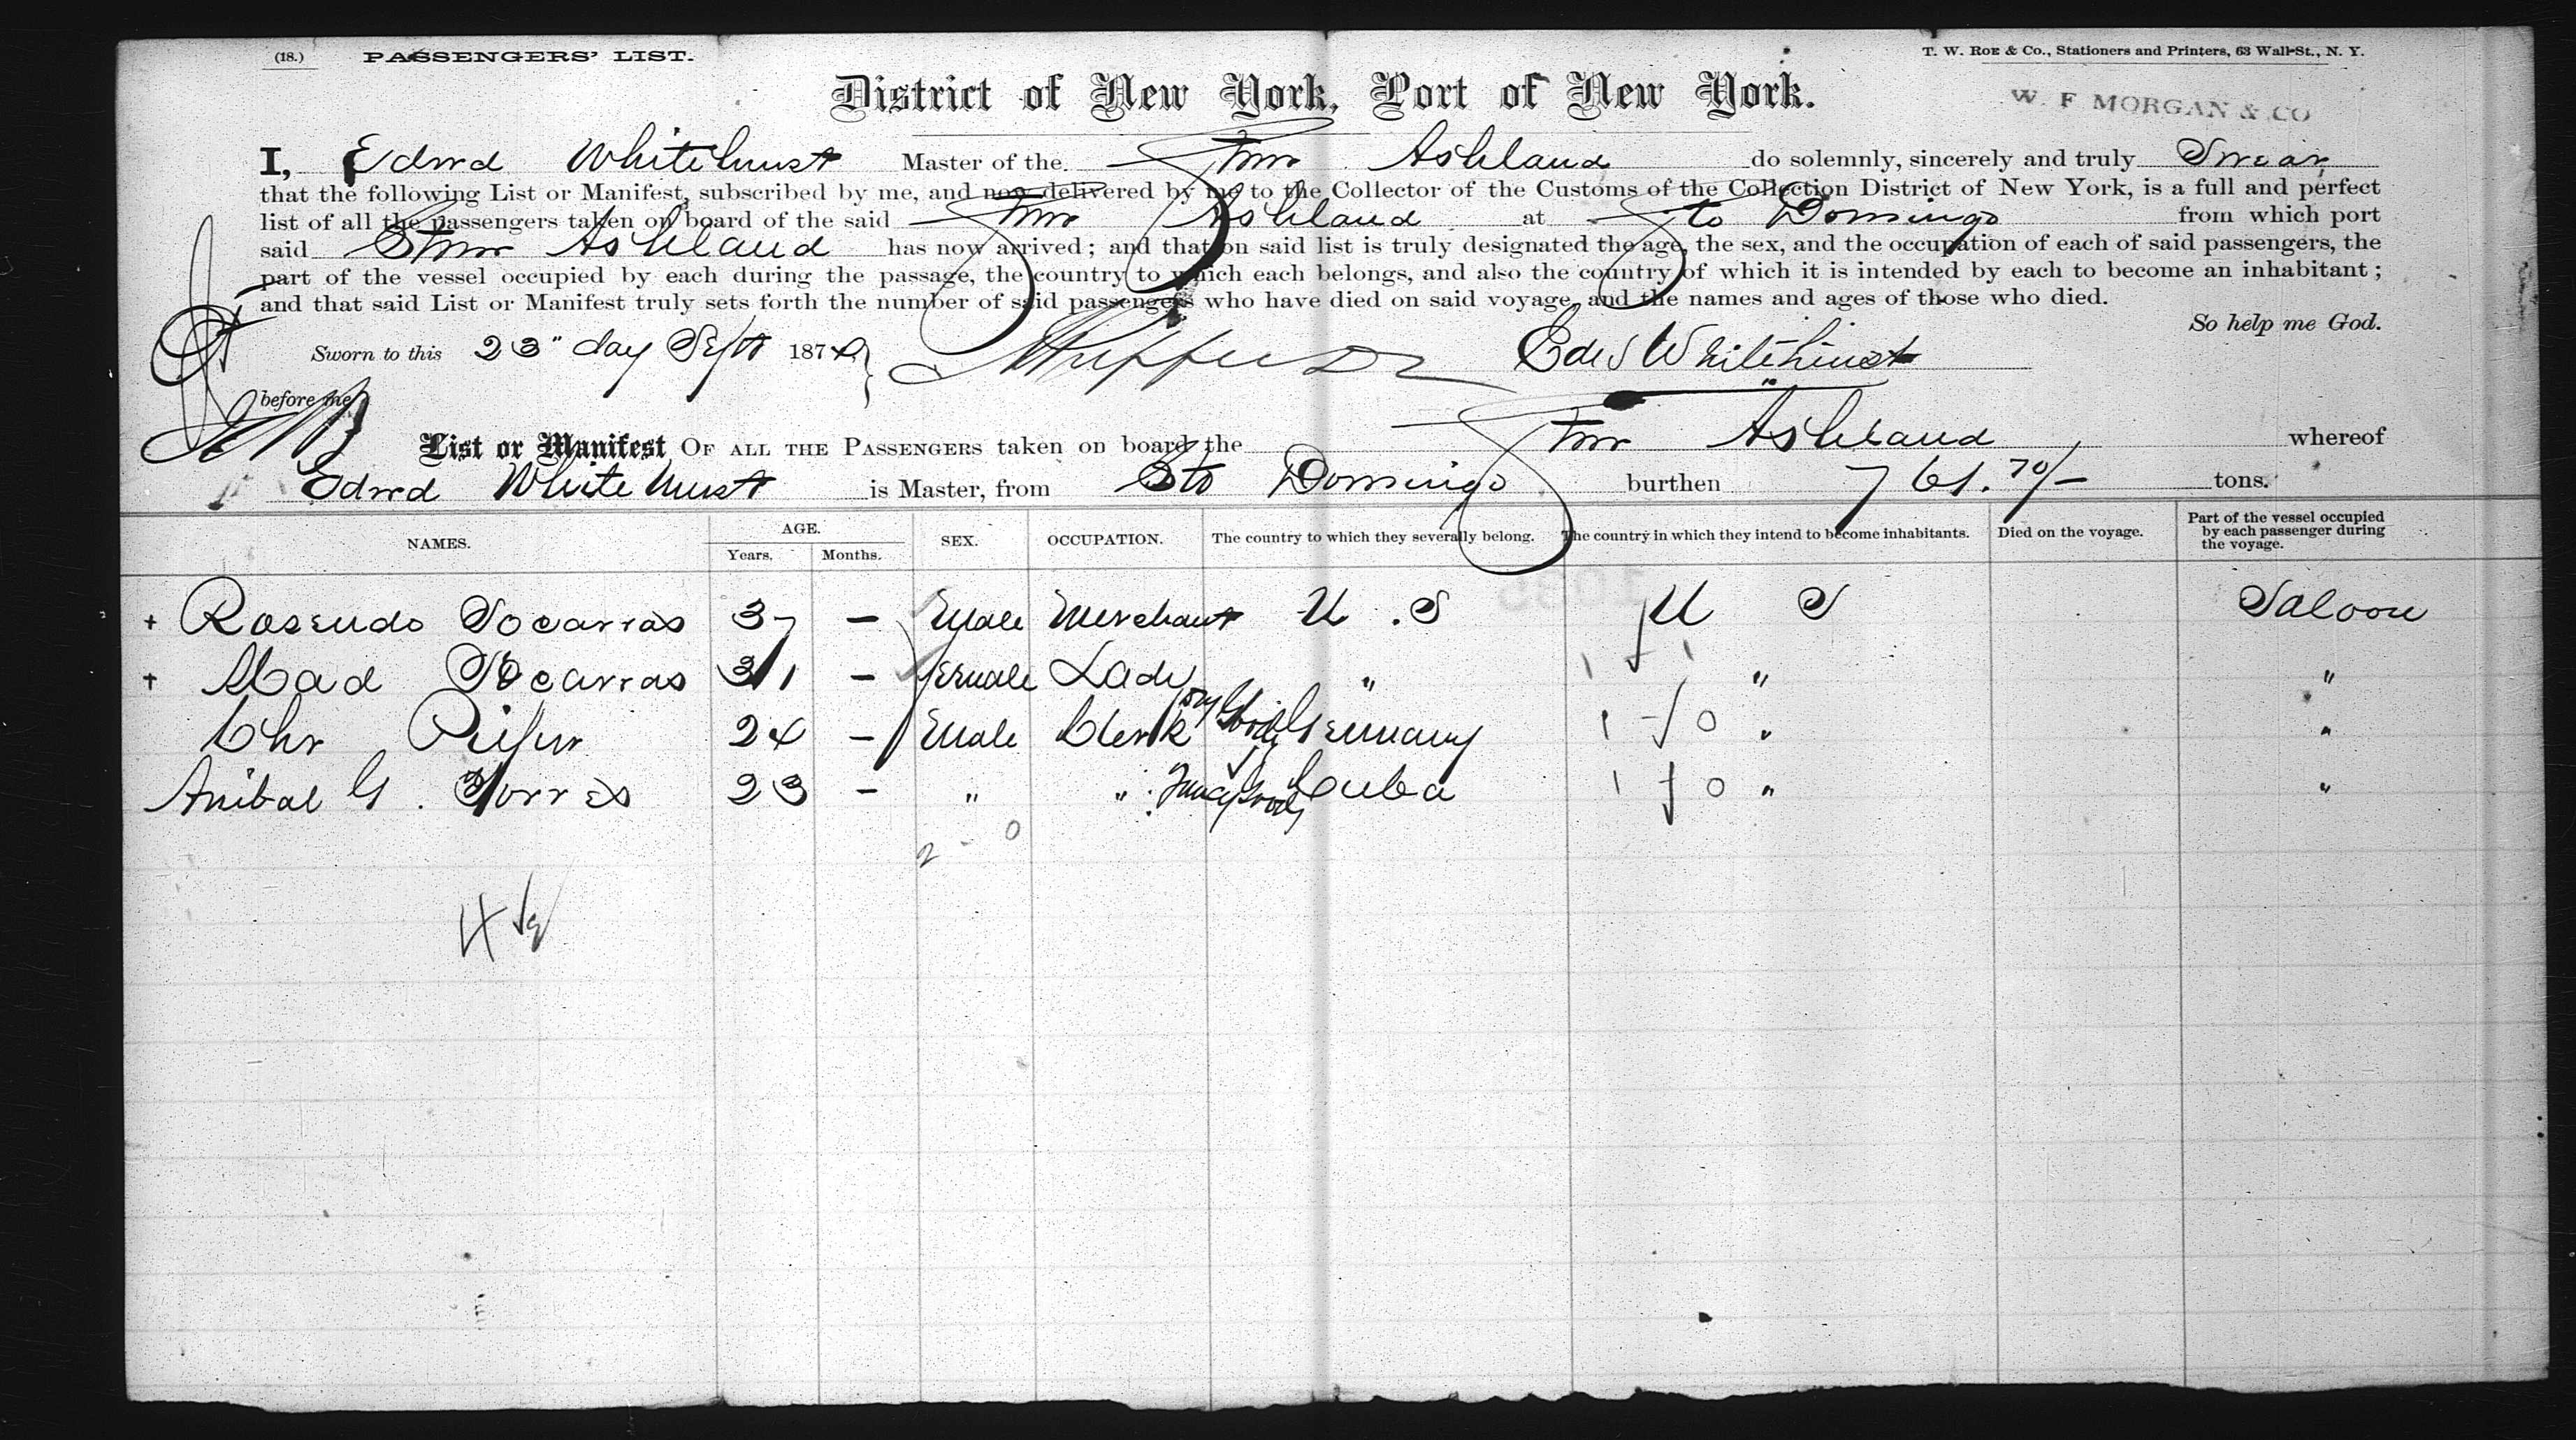 (18.) PASSENGERS' LIST.
T. W. ROE & Co., Stationers and Printers, 63 Wall-St., N. Y.
W. F MORGAN & CO
District of New York, Port of New York.
I, Edwd Whitehurst Master of the Stmr Ashland do solemnly, sincerely and truly Swear
that the following List or Manifest, subscribed by me, and now delivered by me to the Collector of the Customs of the Collection District of New York, is a full and perfect
list of all the passengers taken on board of the said Stmr Ashland at Sto Domingo from which port
said Stmr Ashland has now arrived; and that on said list is truly designated the age, the sex, and the occupation of each of said passengers, the
part of the vessel occupied by each during the passage, the country to which each belongs, and also the country of which it is intended by each to become an inhabitant;
and that said List or Manifest truly sets forth the number of said passengers who have died on said voyage, and the names and ages of those who died.
So help me God.
Sworn to this 23" day Sept 187
Edwd Whitehurst
before me
List or Manifest OF ALL THE PASSENGERS taken on board the Stmr Ashland whereof
Edwd Whitehurst is Master, from Sto Domingo burthen 761. 70/- tons.
NAMES. AGE. Years. Months. SEX. OCCUPATION. The country to which they severally belong. The country in which they intend to become inhabitants. Died on the voyage. Part of the vessel occupied by each passenger during the voyage.
+ Rosendo Socarras 37 - Male Merchant U.S U S Saloon
+ Mad Socarras 31 - Female Lady " " "
Chr 24 - Male Clerk Germany " "
Anibal G. Torres 23 - " " Fancy Goods Cuba " "
2 - 0
4